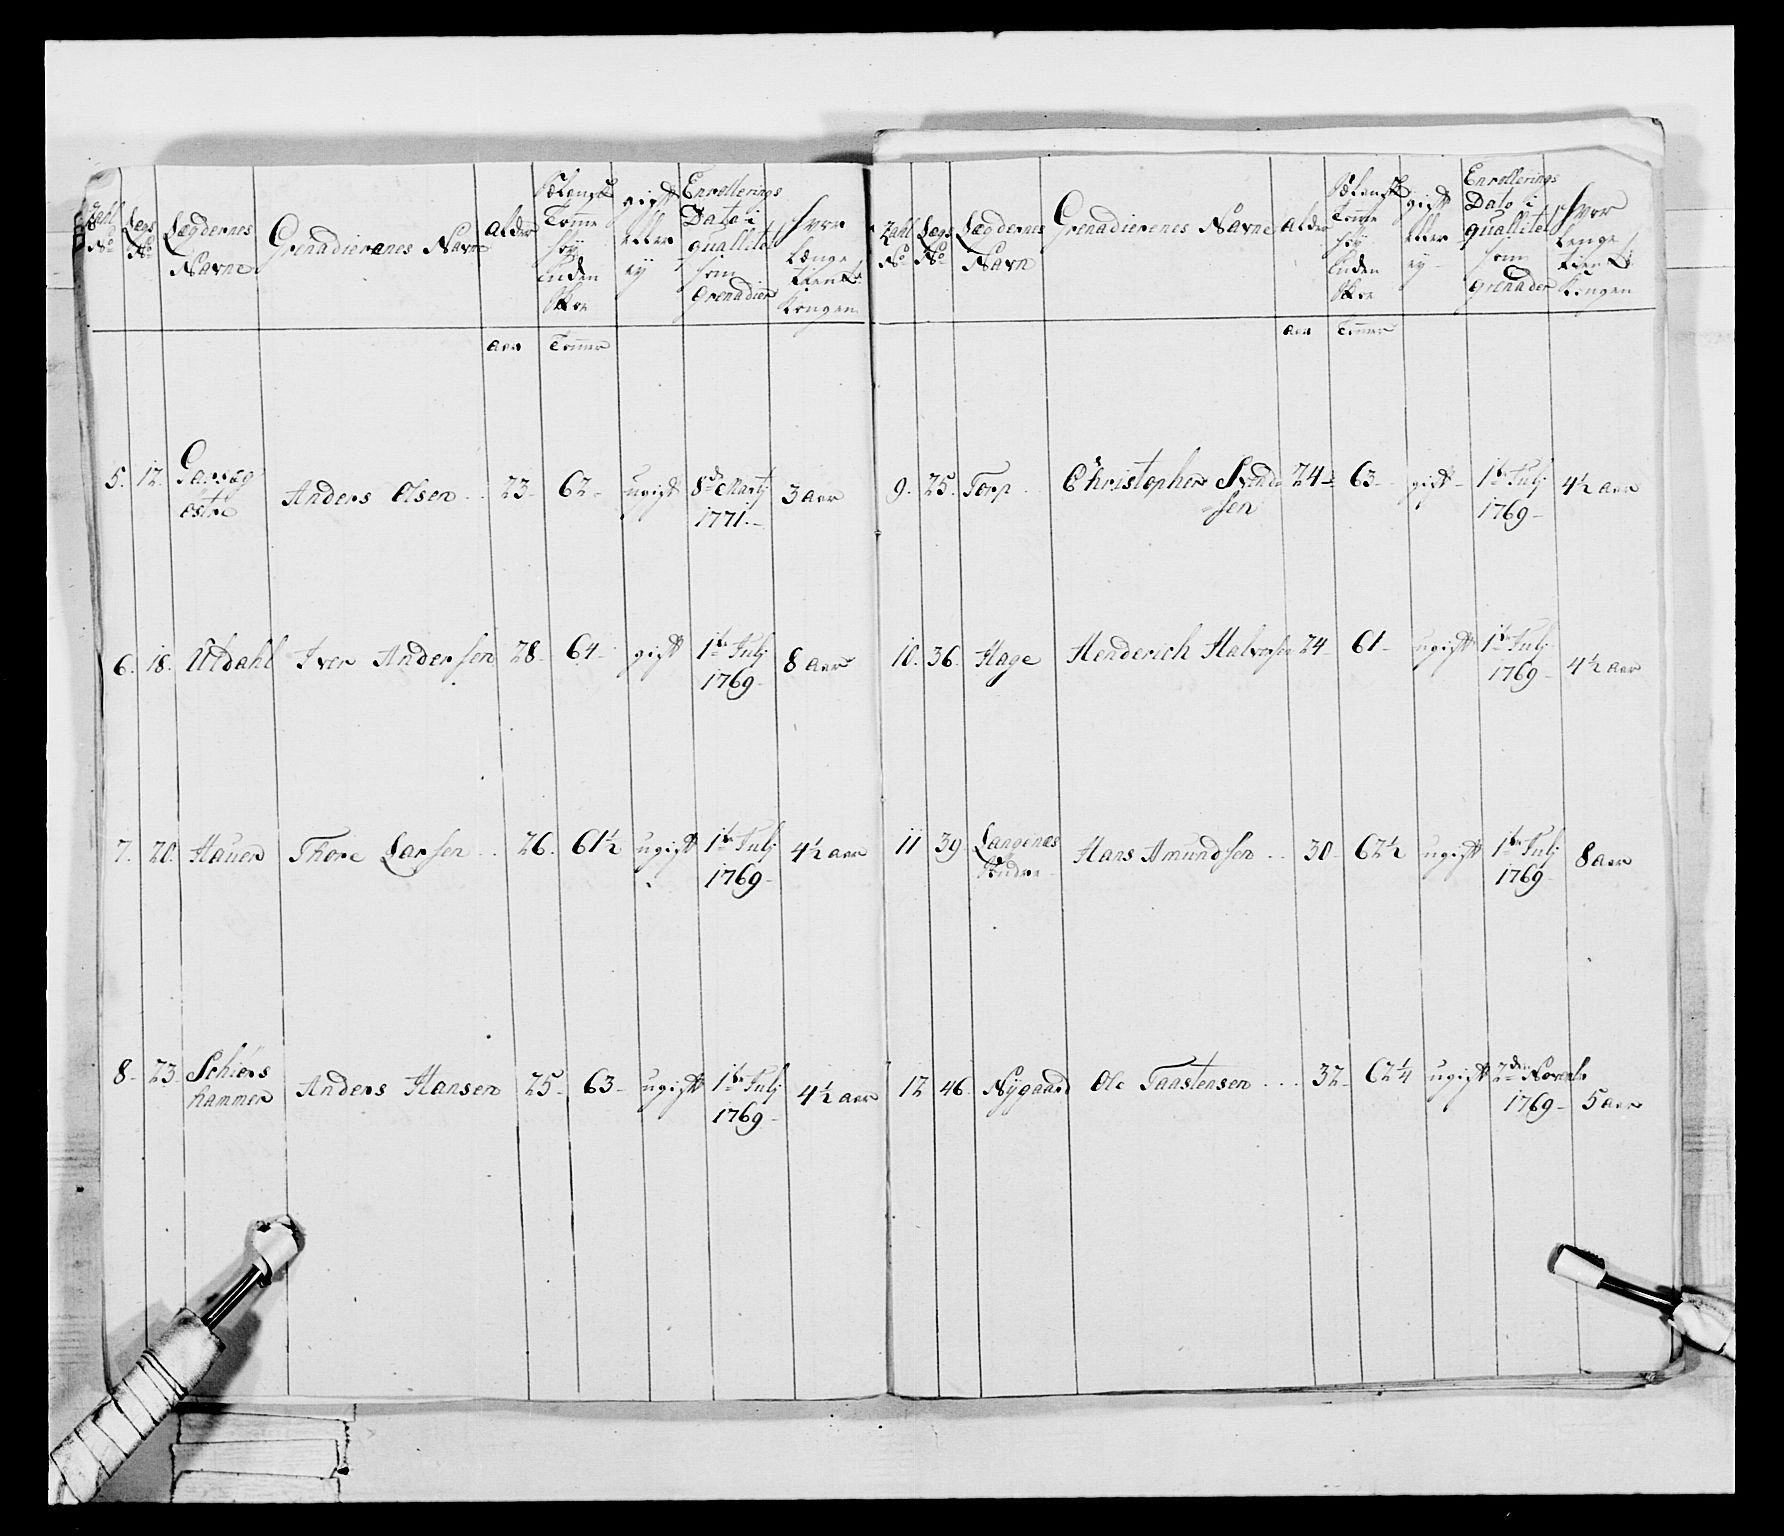 Zahl No
Lægs No
Lægdernes Navne
Grenadierenes Navne
Alder
Sælansk Tomme høy uden Skoe
gift eller ey
Enrollerings Dato i qvallitet som Grenadier
Hvor længe tient Kongen
aar
Tommer
5. 12. Garsøg østre Anders Olsen 23 62 ugift 8de Martj 1771. 3 aar
6. 18. Utdahl Iver Andersen 28 64 gift 1te Julj 1769 8 aar
7. 20. Hauer Thore Larsen 26 61½ ugift 1te Julj 1769 4½ aar
8 23 Schiørs hammer Anders Hansen 25 63 ugift 1te Julj 1769 4½ aar
Zahl No
Lægs No
Lægdernes Navn
Grenadierenes Navne
Alder
Sælansk Tomme høy uden Skoe
gift eller ey
Enrollerings Dato i qvallitet som Grenader
Hvor lenge tient Kongen
aar
Tommer
9. 25. Torp Christopher Svend sen 24 63 gift 1te Julj 1769 4½ aar
10. 36. Hage Henderich Halvorsen 24 61 ugift 1te Julj 1769 4½ aar
11 39 Langenæs Hans Amundsen 30 62½ ugift 1te Julj 1769 8 aar
12 46 Nÿgaard Ole Taastensen 32 62¼ ugift 2den Novembr 1769 5 aar